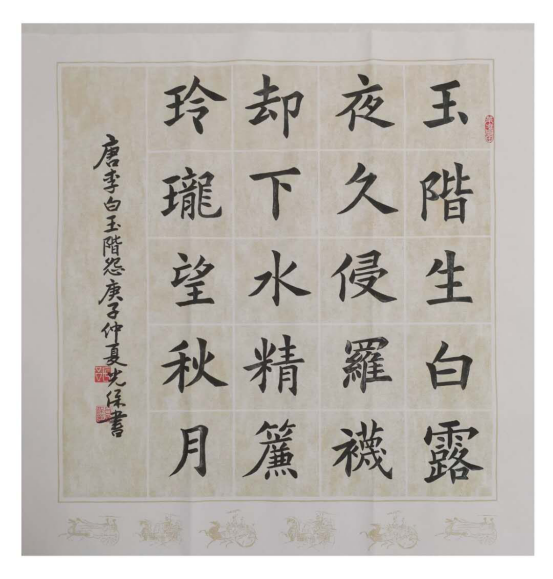 玉階生白露
夜久侵羅襪
却下水精簾
玲瓏望秋月
唐李白玉階怨庚子仲夏光保書